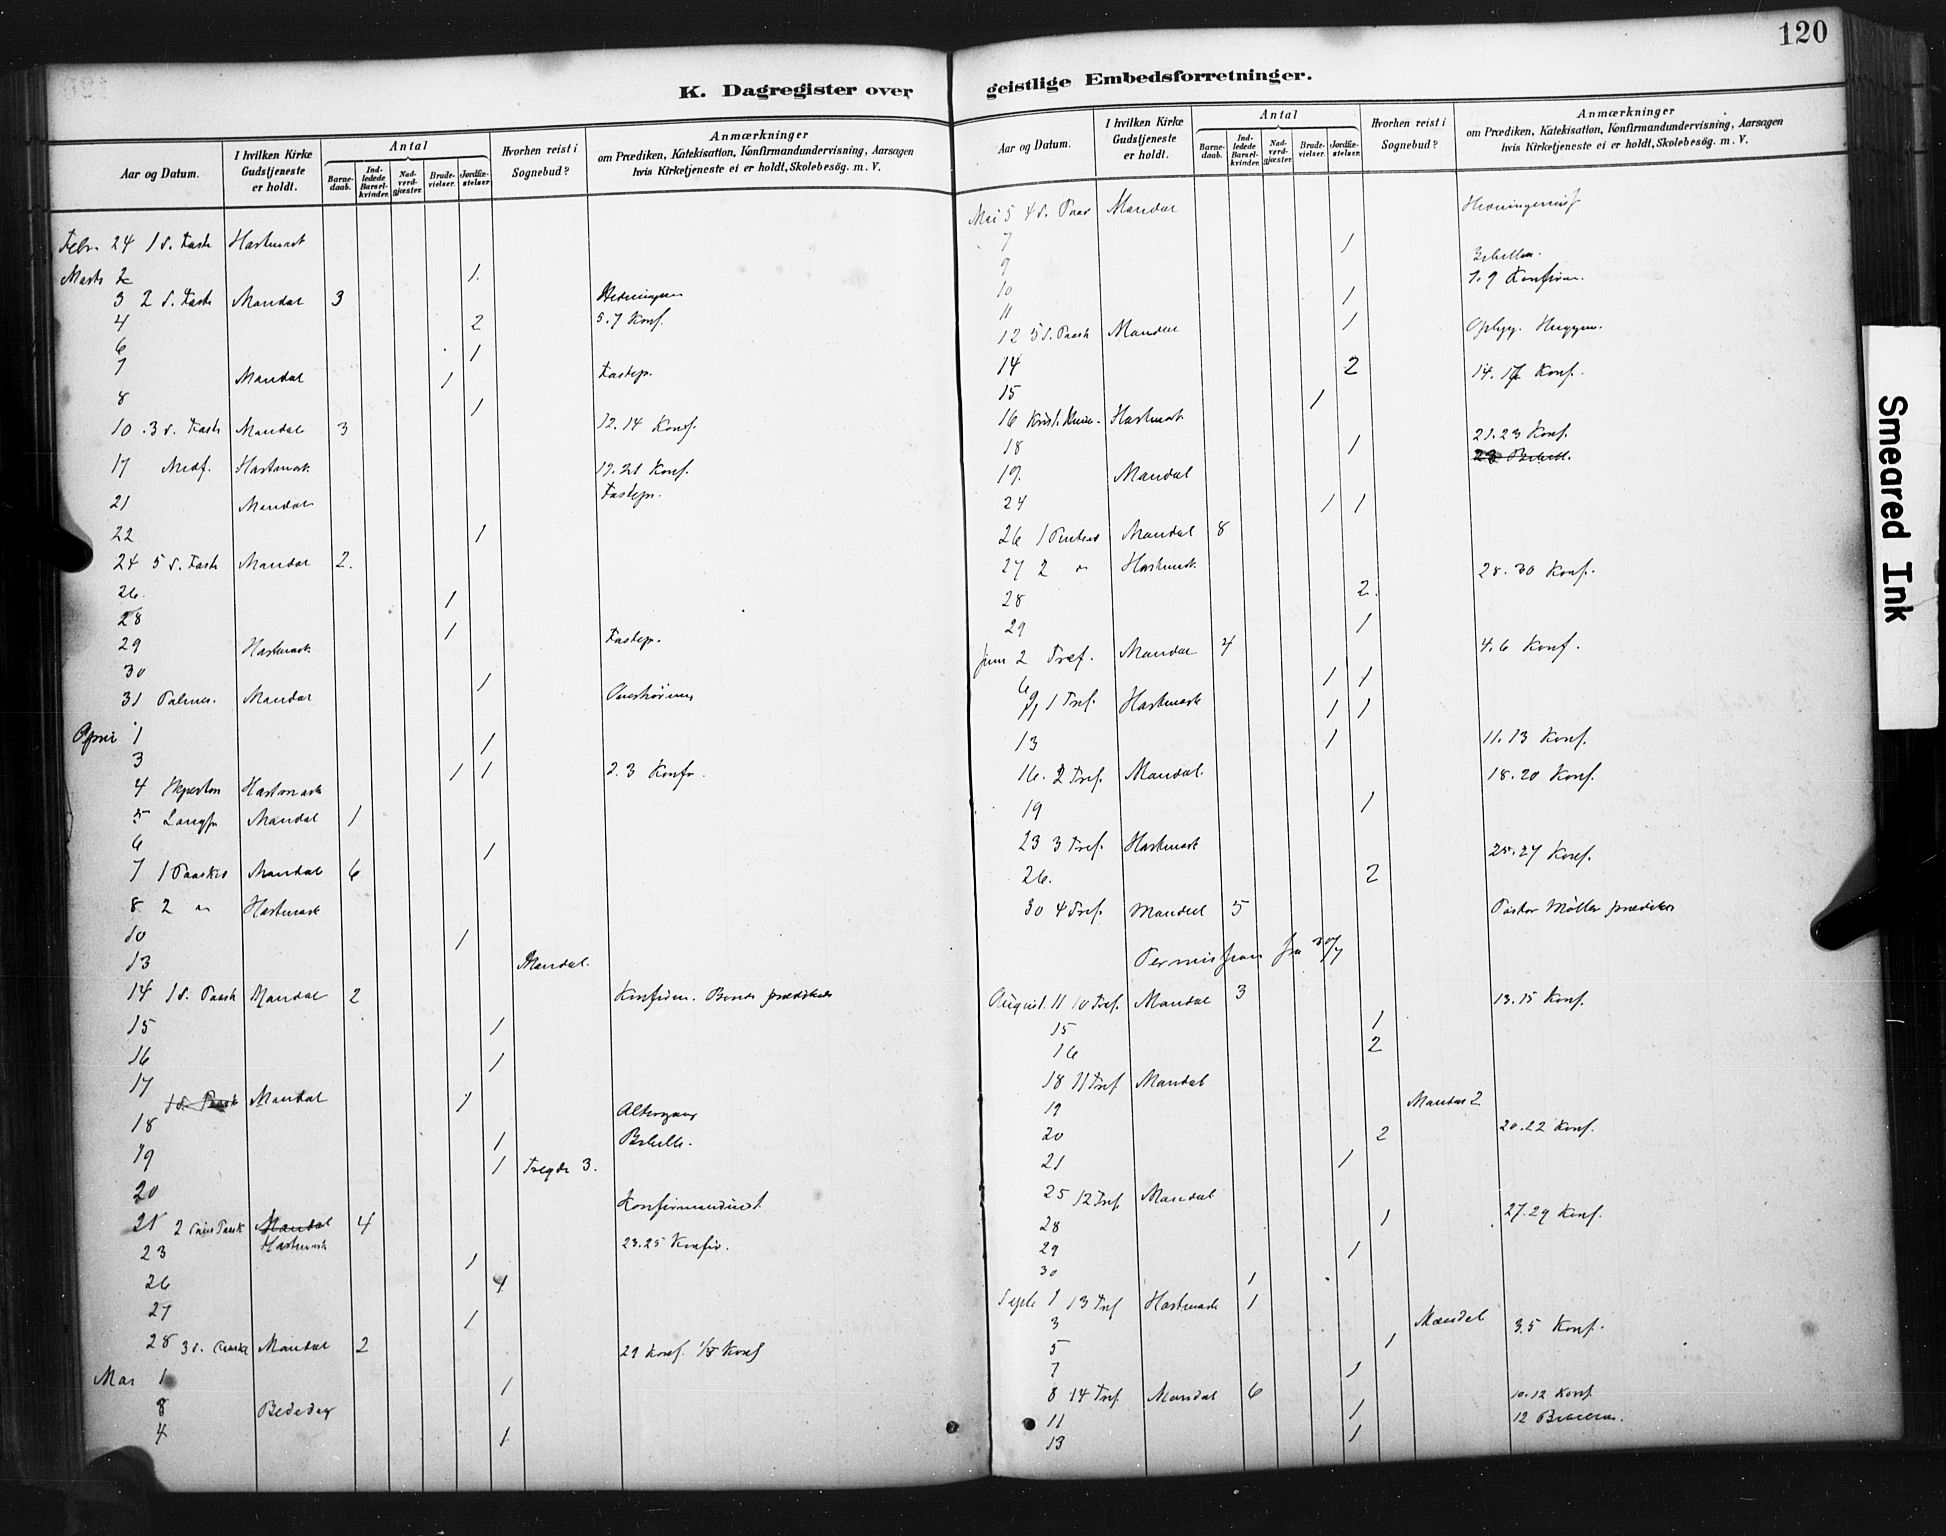 120
K. Dagregister over
Aar og Datum.
I hvilken Kirke Gudstjeneste er holdt.
Antal
Barne- daab.
Ind- ledede Barsel- kvinder.
Nad- verd- gjæster.
Brude- vielser.
Jordfæ- stelser.
Hvorhen reist i Sognebud?
Anmærkninger
om Prædiken, Katekisation, Konfirmandundervisning, Aarsagen
hvis Kirketjeneste ei er holdt, Skolebesög. m. V.
Febr. 24 1 S. Faste Hartmark
Marts 2 1.
3 2 S. Faste Mandal 3
4 2 5.7 Konf.
6 1
7 Mandal 1 Fastepr.
8 1
10 3 S. Faste Mandal 3 12.14 Konf.
17 Midf. Hartmark 19.21 Konf.
21 Mandal Fastepr.
22 1
24 5 S. Faste Mandal 2.
26. 1
28 1
29 Hartmark Fastepr.
30 1
31 Palmes. Mandal
April 1 1
3 1 1 2.3 Konfr.
4 Skjærtor Hartmark
5 Langfr Mandal 1
6 1
7 1 Paaskes Mandal 6
8 2 " Hartmark
10 1
13 Mandal.
14 1 S. Paask Mandal 2 Konfirm. Bonde prædikede
15 1
16 1
17 1 S. Paask Mandal 1 Altergang
18 1 Bibell.
19 1 Tregde 3.
20 Konfirmandund.
21 2 S. Paask Mandal Hartmark 4
23 1 23.25 Konfir.
26 1
27 1
28 3 S. Paaske Mandal 2 29 Konf. 1/5 Konf
Mai 1 1
3 Bededag
4 1
geistlige Embedsforretninger.
Aar og Datum.
I hvilken Kirke Gudstjeneste er holdt.
Antal
Barne- daab.
Ind- ledede Barsel- kvinder.
Nad- verd- gjæster.
Brude- vielser.
Jordfæ- stelser.
Hvorhen reist i Sognebud?
Anmærkninger
om Prædiken, Katekisation, Konfirmandundervisning, Aarsagen
hvis Kirketjeneste ei er holdt, Skolebesög. m. V.
Mai 5 4 S. Paas Mandal
7 1
9 Bibellæ.
10 1 7.9 Konfirm.
11 1
12 5 S. Paask Mandal
14 2 14.17 Konf.
15 1
16 Krist. Him. Hartmark
18 1 21.23 Konf.
19. Mandal 23 Bibell.
24 1 1
26 1 Pintsed Mandal 8
27 2 " Hartmark 28.30 Konf.
28 2.
29 1
Juni 2 Tref. Mandal 4 4.6 Konf.
6 1 1
9 1 Tref. Hartmark
11 1 1
13 1 11.13 Konf.
16. 2 Tref. Mandal. 18.20 Konf.
19 1
23 3 Tref. Hartmark 25.27 Konf.
26. 2
30 4 Tref. Mandal 5 Pastor Møller prædiked
Permission fra 30/7
August. 11 10 Tref. Mandal 3 13.15 Konf.
15 1
16 2
18 11 Tref Mandal
19 Mandal 2
20 2 20.22 Konf.
21 1
25 12 Tref Mandal 27.29 Konf.
28 1
29 1
30 1
Septb 1 13 Tref Hartmark 1
3 Mandal 3.5 Konf.
5 1
7 1
8 14 Tref. Mandal 6 10.12 Konf
11 1 12
13 1
Smeared Ink